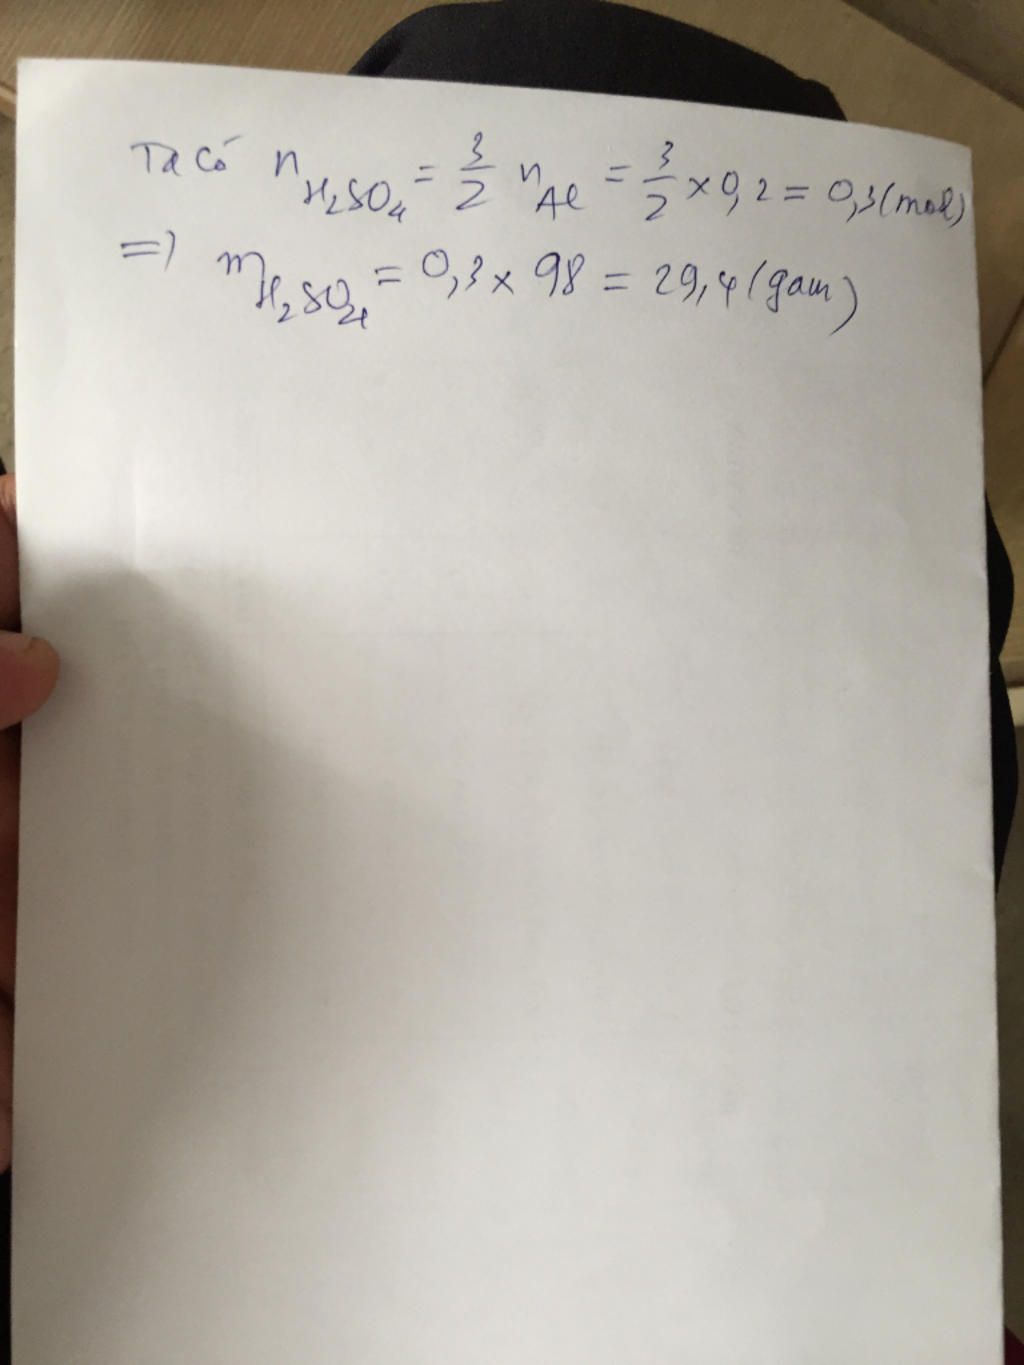 Ta có n H₂SO₄ = 3/2 n Al = 3/2 × 0,2 = 0,3 (mol)
=> m H₂SO₄ = 0,3 × 98 = 29,4 (gam)